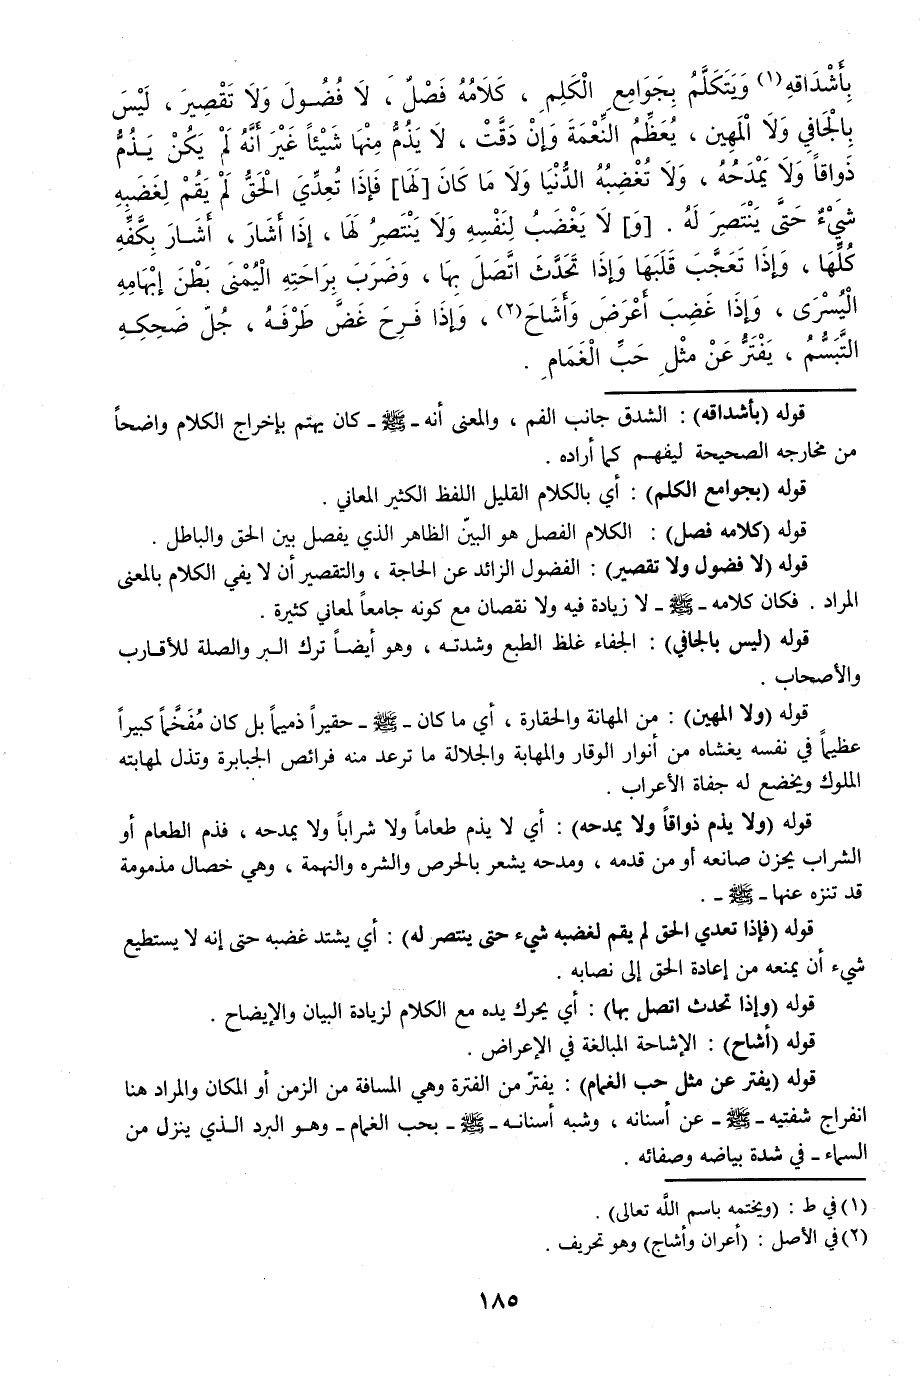 بِأَشْدَاقِهِ(١) وَيَتَكَلَّمُ بِجَوَامِعِ الْكَلِمِ ، كَلَامُهُ فَصْلٌ ، لَا فُضُولَ وَلَا تَقْصِيرَ ، لَيْسَ
بِالْجَافِي وَلَا الْمَهِينِ ، يُعَظِّمُ النِّعْمَةَ وَإِنْ دَقَّتْ ، لَا يَذُمُّ مِنْهَا شَيْئاً غَيْرَ أَنَّهُ لَمْ يَكُنْ يَذُمُّ
ذَوَاقاً وَلَا يَمْدَحُهُ ، وَلَا تُغْضِبُهُ الدُّنْيَا وَلَا مَا كَانَ [لَهَا] فَإِذَا تُعِدِّيَ الْحَقُّ لَمْ يَقُمْ لِغَضَبِهِ
شَيْءٌ حَتَّى يَنْتَصِرَ لَهُ . [وَ] لَا يَغْضَبُ لِنَفْسِهِ وَلَا يَنْتَصِرُ لَهَا ، إِذَا أَشَارَ ، أَشَارَ بِكَفِّهِ
كُلِّهَا ، وَإِذَا تَعَجَّبَ قَلَبَهَا وَإِذَا تَحَدَّثَ اتَّصَلَ بِهَا ، وَضَرَبَ بِرَاحَتِهِ الْيُمْنَى بَطْنَ إِبْهَامِهِ
الْيُسْرَى ، وَإِذَا غَضِبَ أَعْرَضَ وَأَشَاحَ(٢) ، وَإِذَا فَرِحَ غَضَّ طَرْفَهُ ، جُلّ ضَحِكِهِ
التَّبَسُّمُ ، يَفْتَرُّ عَنْ مِثْلِ حَبِّ الْغَمَامِ .
قوله (بأشداقه) : الشدق جانب الفم ، والمعنى أنه ـ ﷺ ـ كان يهتم بإخراج الكلام واضحاً
من مخارجه الصحيحة ليفهم كما أراده .
قوله (بجوامع الكلم) : أي بالكلام القليل اللفظ الكثير المعاني .
قوله (كلامه فصل) : الكلام الفصل هو البيّن الظاهر الذي يفصل بين الحق والباطل .
قوله (لا فضول ولا تقصير) : الفضول الزائد عن الحاجة ، والتقصير أن لا يفي الكلام بالمعنى
المراد . فكان كلامه ـ ﷺ ـ لا زيادة فيه ولا نقصان مع كونه جامعاً لمعاني كثيرة .
قوله (ليس بالجافي) : الجفاء غلظ الطبع وشدته ، وهو أيضاً ترك البر والصلة للأقارب
والأصحاب .
قوله (ولا المهين) : من المهانة والحقارة ، أي ما كان ـ ﷺ ـ حقيراً ذميماً بل كان مُفَخَّماً كبيراً
عظيماً في نفسه يغشاه من أنوار الوقار والمهابة والجلالة ما ترعد منه فرائص الجبابرة وتذل لمهابته
الملوك ويخضع له جفاة الأعراب .
قوله (ولا يذم ذواقاً ولا يمدحه) : أي لا يذم طعاماً ولا شراباً ولا يمدحه ، فذم الطعام أو
الشراب يحزن صانعه أو من قدمه ، ومدحه يشعر بالحرص والشره والنهمة ، وهي خصال مذمومة
قد تنزه عنها ـ ﷺ ـ .
قوله (فإذا تعدي الحق لم يقم لغضبه شيء حتى ينتصر له) : أي يشتد غضبه حتى إنه لا يستطيع
شيء أن يمنعه من إعادة الحق إلى نصابه .
قوله (وإذا تحدث اتصل بها) : أي يحرك يده مع الكلام لزيادة البيان والإيضاح .
قوله (أشاح) : الإشاحة المبالغة في الإعراض .
قوله (يفتر عن مثل حب الغمام) : يفترّ من الفترة وهي المسافة من الزمن أو المكان والمراد هنا
انفراج شفتيه ـ ﷺ ـ عن أسنانه ، وشبه أسنانه ـ ﷺ ـ بحب الغمام ـ وهو البرد الذي ينزل من
السماء ـ في شدة بياضه وصفائه .
(١) في ط : (ويختمه باسم اللَّه تعالى) .
(٢) في الأصل : (أعران وأشاج) وهو تحريف .
١٨٥